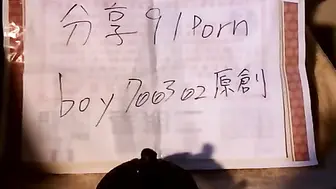 分享91Porn
boy700302原創